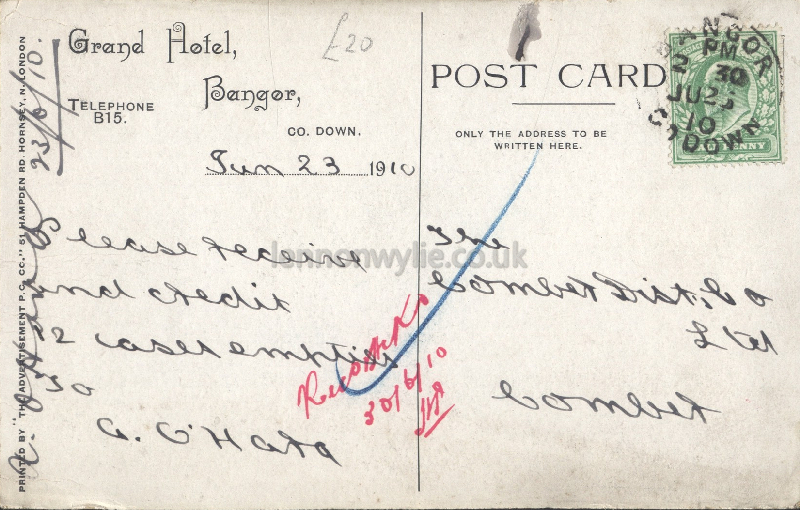 Grand Hotel,
Bangor,
TELEPHONE
B15.
CO. DOWN.
Jun 23 1910
Please receive
and credit
12 cases empties
To
A. O'Hara
£20
23/6/10.
A. O'Hara
PRINTED BY "THE ADVERTISEMENT P.C. CO." 51 HAMPDEN RD. HORNSEY, N. LONDON
POST CARD
ONLY THE ADDRESS TO BE
WRITTEN HERE.
The
Comber Dist, Co
Ltd
Comber
30/6/10
BANGOR
PM
2 30
JU 23
10
CO DOWN
PENNY
lennonwylie.co.uk